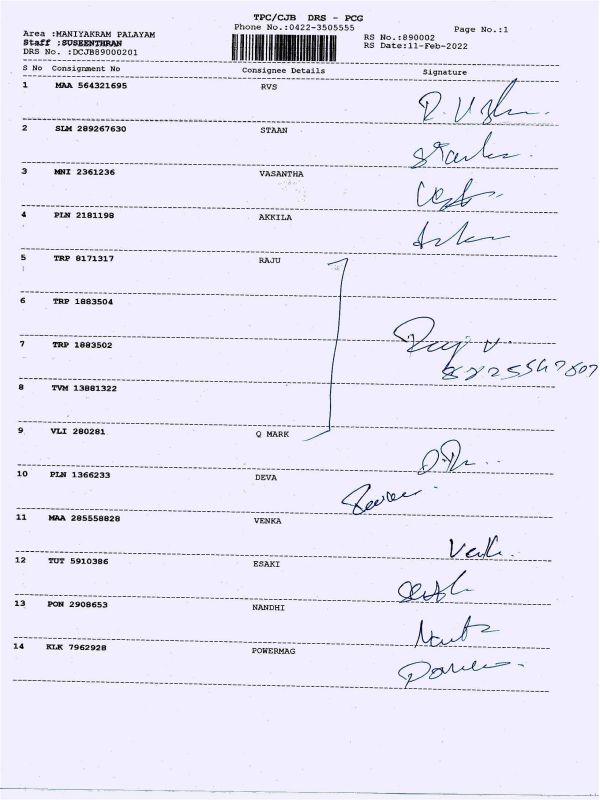 TPC/CJB DRS - PCG
Phone No.:0422-3505555
Page No.:1
Area :MANIYAKRAM PALAYAM
Staff :SUSEENTHRAN
DRS No. :DCJB89000201
RS No.:890002
RS Date:11-Feb-2022
S No Consignment No Consignee Details Signature
1 MAA 564321695 RVS
2 SLM 289267630 STAAN
3 MNI 2361236 VASANTHA
4 PLN 2181198 AKKILA
5 TRP 8171317 RAJU
6 TRP 1883504
7 TRP 1883502
8 TVM 13881322
9 VLI 280281 Q MARK
10 PLN 1366233 DEVA
11 MAA 285558828 VENKA
12 TUT 5910386 ESAKI
13 PON 2908653 NANDHI
14 KLK 7962928 POWERMAG